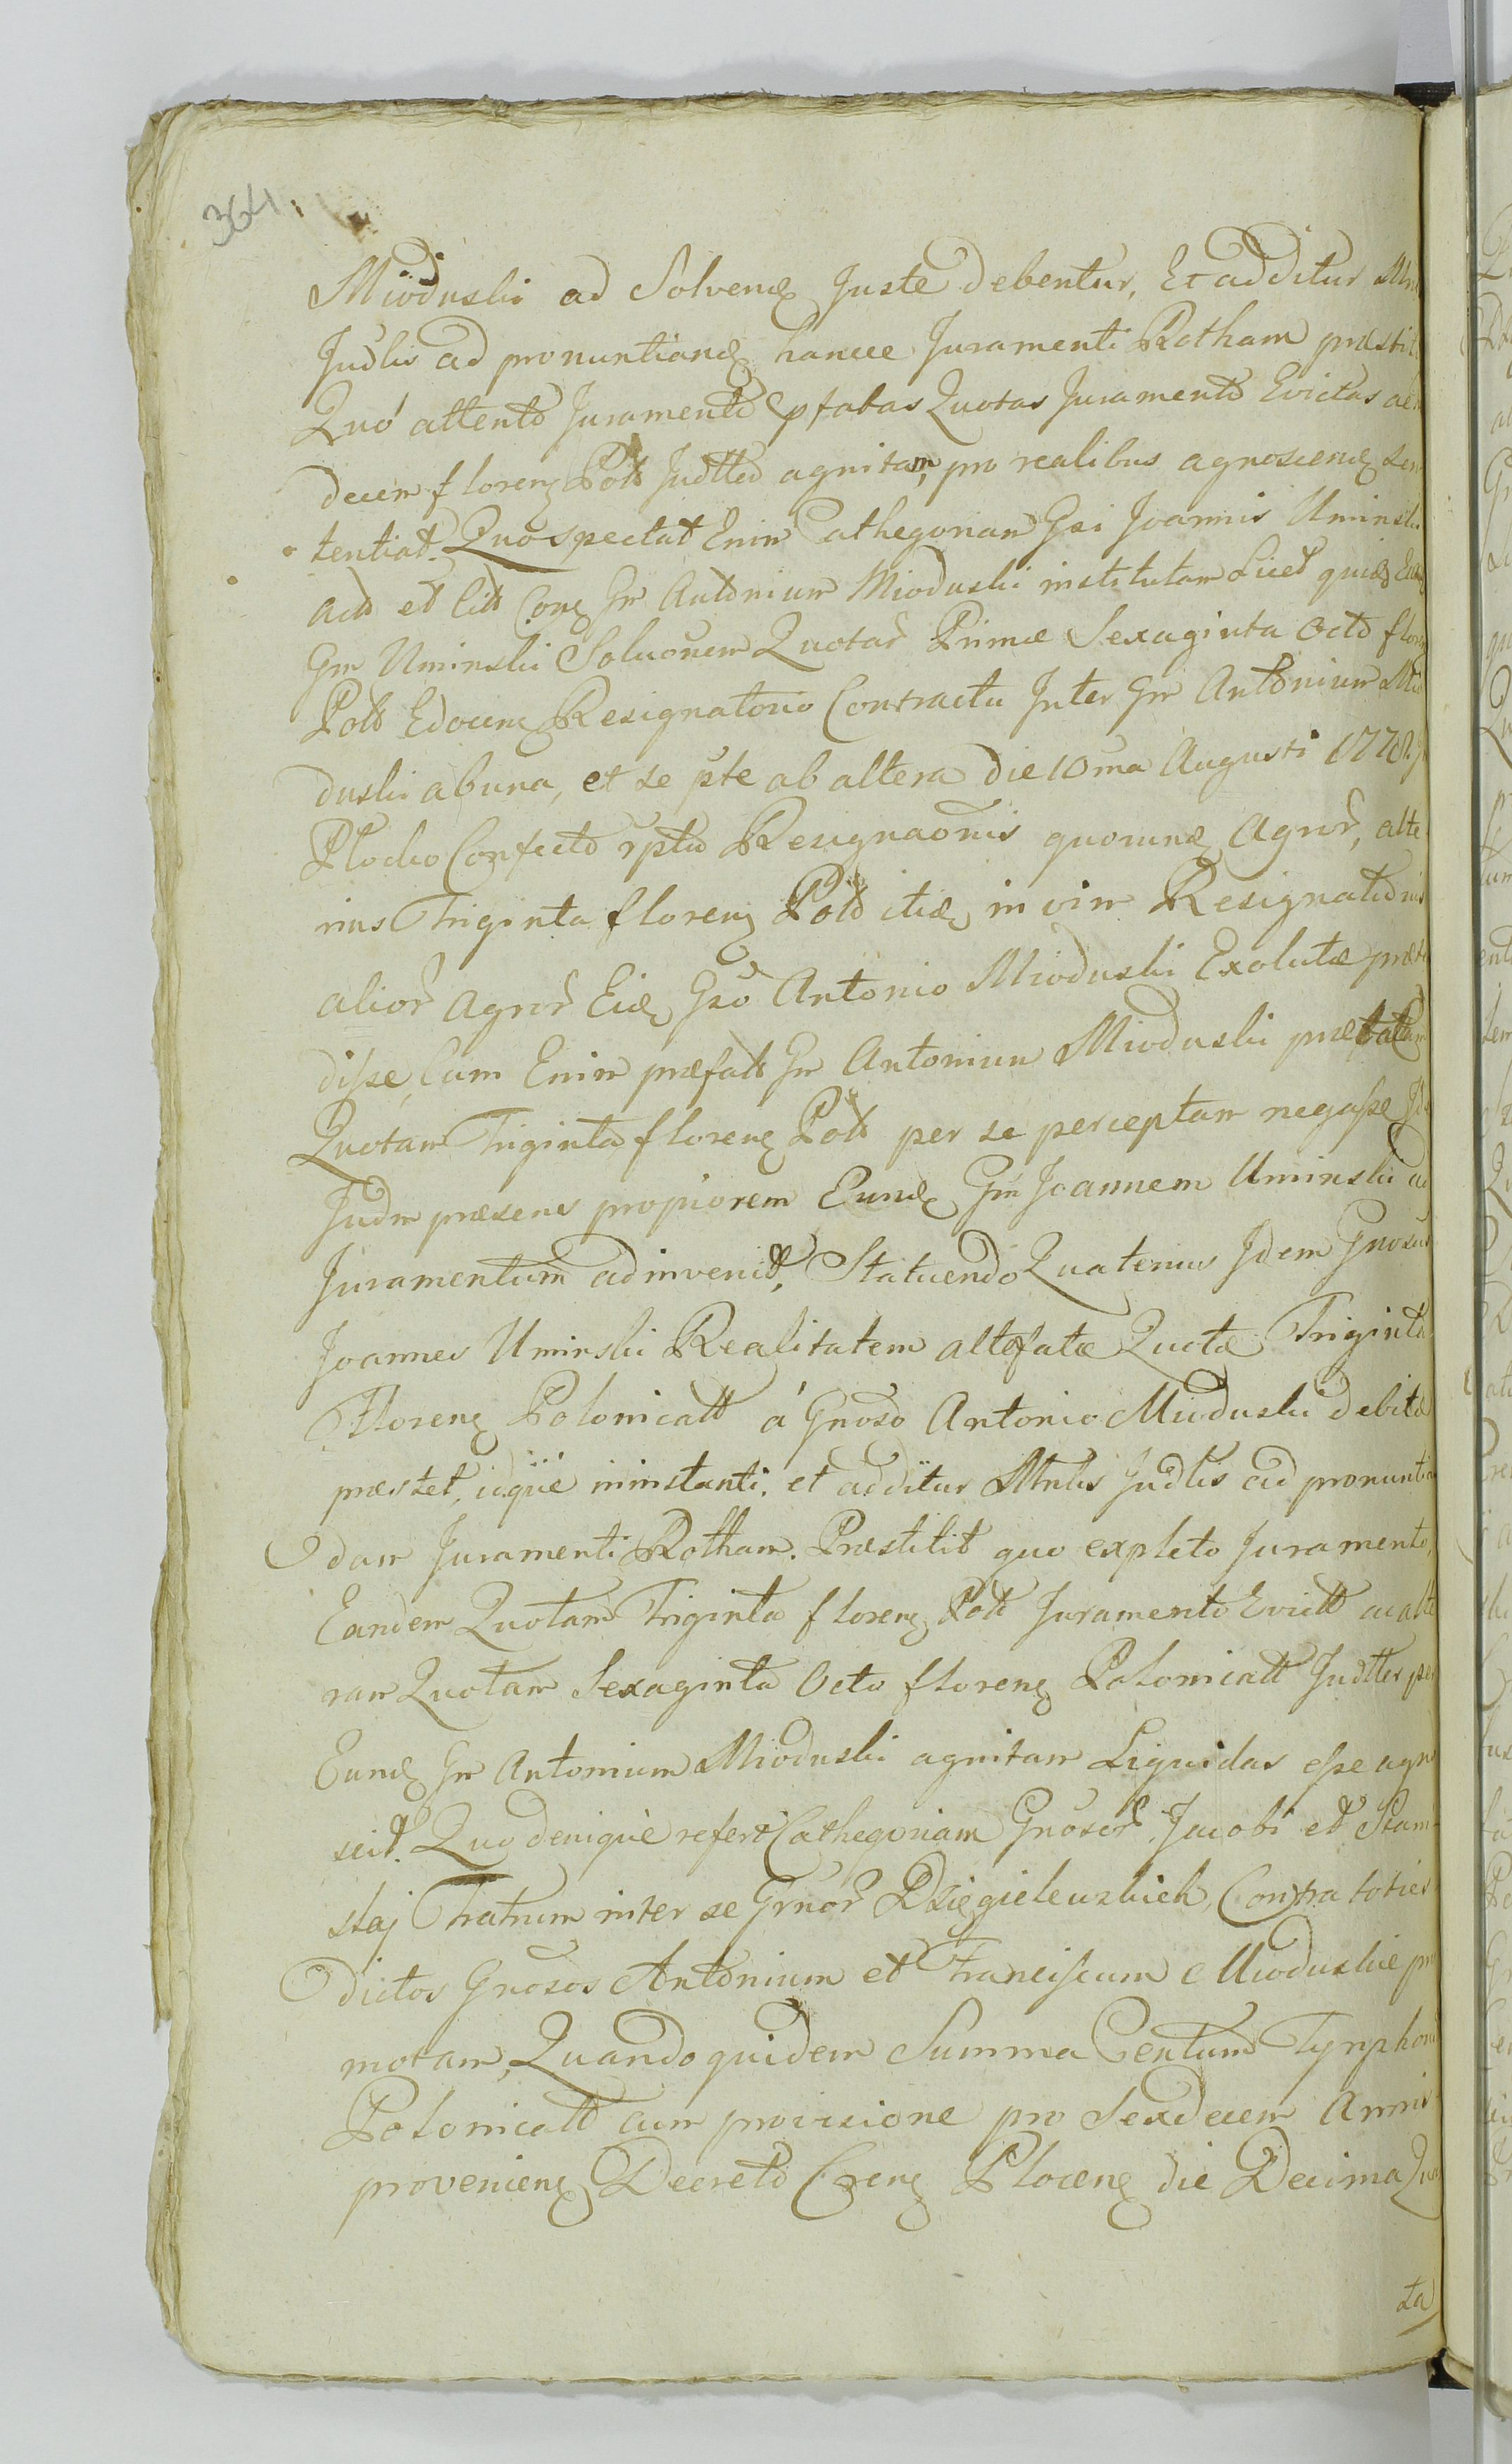 364.
Mioduski ad Solvend Juste debentur, Et additur
Judlis ad pronuntiand hancce Juramenti Rotham præstit
Quó attento Juramento pfatas Quotas Juramento Evictas
decem floren Poll Judtted agnitam, pro realibus agnoscend Sen
tentiat. Quo spectat Enim Cathegoriam Gsi Joannis Uminski
act et litt Con Gm Antonium Mioduski institutam Licet quid
Gm Uminski Soluonem Quotar Primæ Sexaginta Octo flor
Poll Edocend Resignatorio Contractu Inter Gm Antonium Mio
duski ab una, et se pte ab altera die 10ma Augusti
Plocko Confecto rptu Resignaonis quorund Agror, alte
rius Triginta floren Poll itid in vim Resignationis
alior Agror Eid Gso Antonio Mioduski Exolutæ præten
disse, Cum Enim præfatt Gm Antonium Mioduski præfatam
Quotam Triginta floren Poll per se perceptam negasse Id
Judm præsens propiorem Eund Gm Joannem Uminski ad
Juramentum adinvenit, Statuendo Quatenus Idem Gnosus
Joannes Uminski Realitatem altefatæ Quotæ Triginta
Floren Polonicall á Gnoso Antonio Mioduski debitæ
præstet, idqúe ininstanti. et additur Mnlis Judlis ad pronuntian
dam Juramenti Rotham. Præstitit quo expleto Juramento,
Eandem Quotam Triginta floren Poll Juramento Evictt ac alte
ram Quotam Sexaginta Octo floren Polonicall Judtter per
Eund Gm Antonium Mioduski agnitam Liquidas esse agno
scit. Quo deniqúe refert Cathegoriam Gnosor Jacobi et Stani
slaj Fratrum inter se Grnor Dzięgielewskich, Contra toties
dictos Gnosos Antonium et Franciscum Mioduskie pro
motam, Quandoquidem Summa Centum Tynphon
Polonicall cum provisione pro Sexdecem Annis
provenien Decreto Cren Plocen die Decima Quar
ta